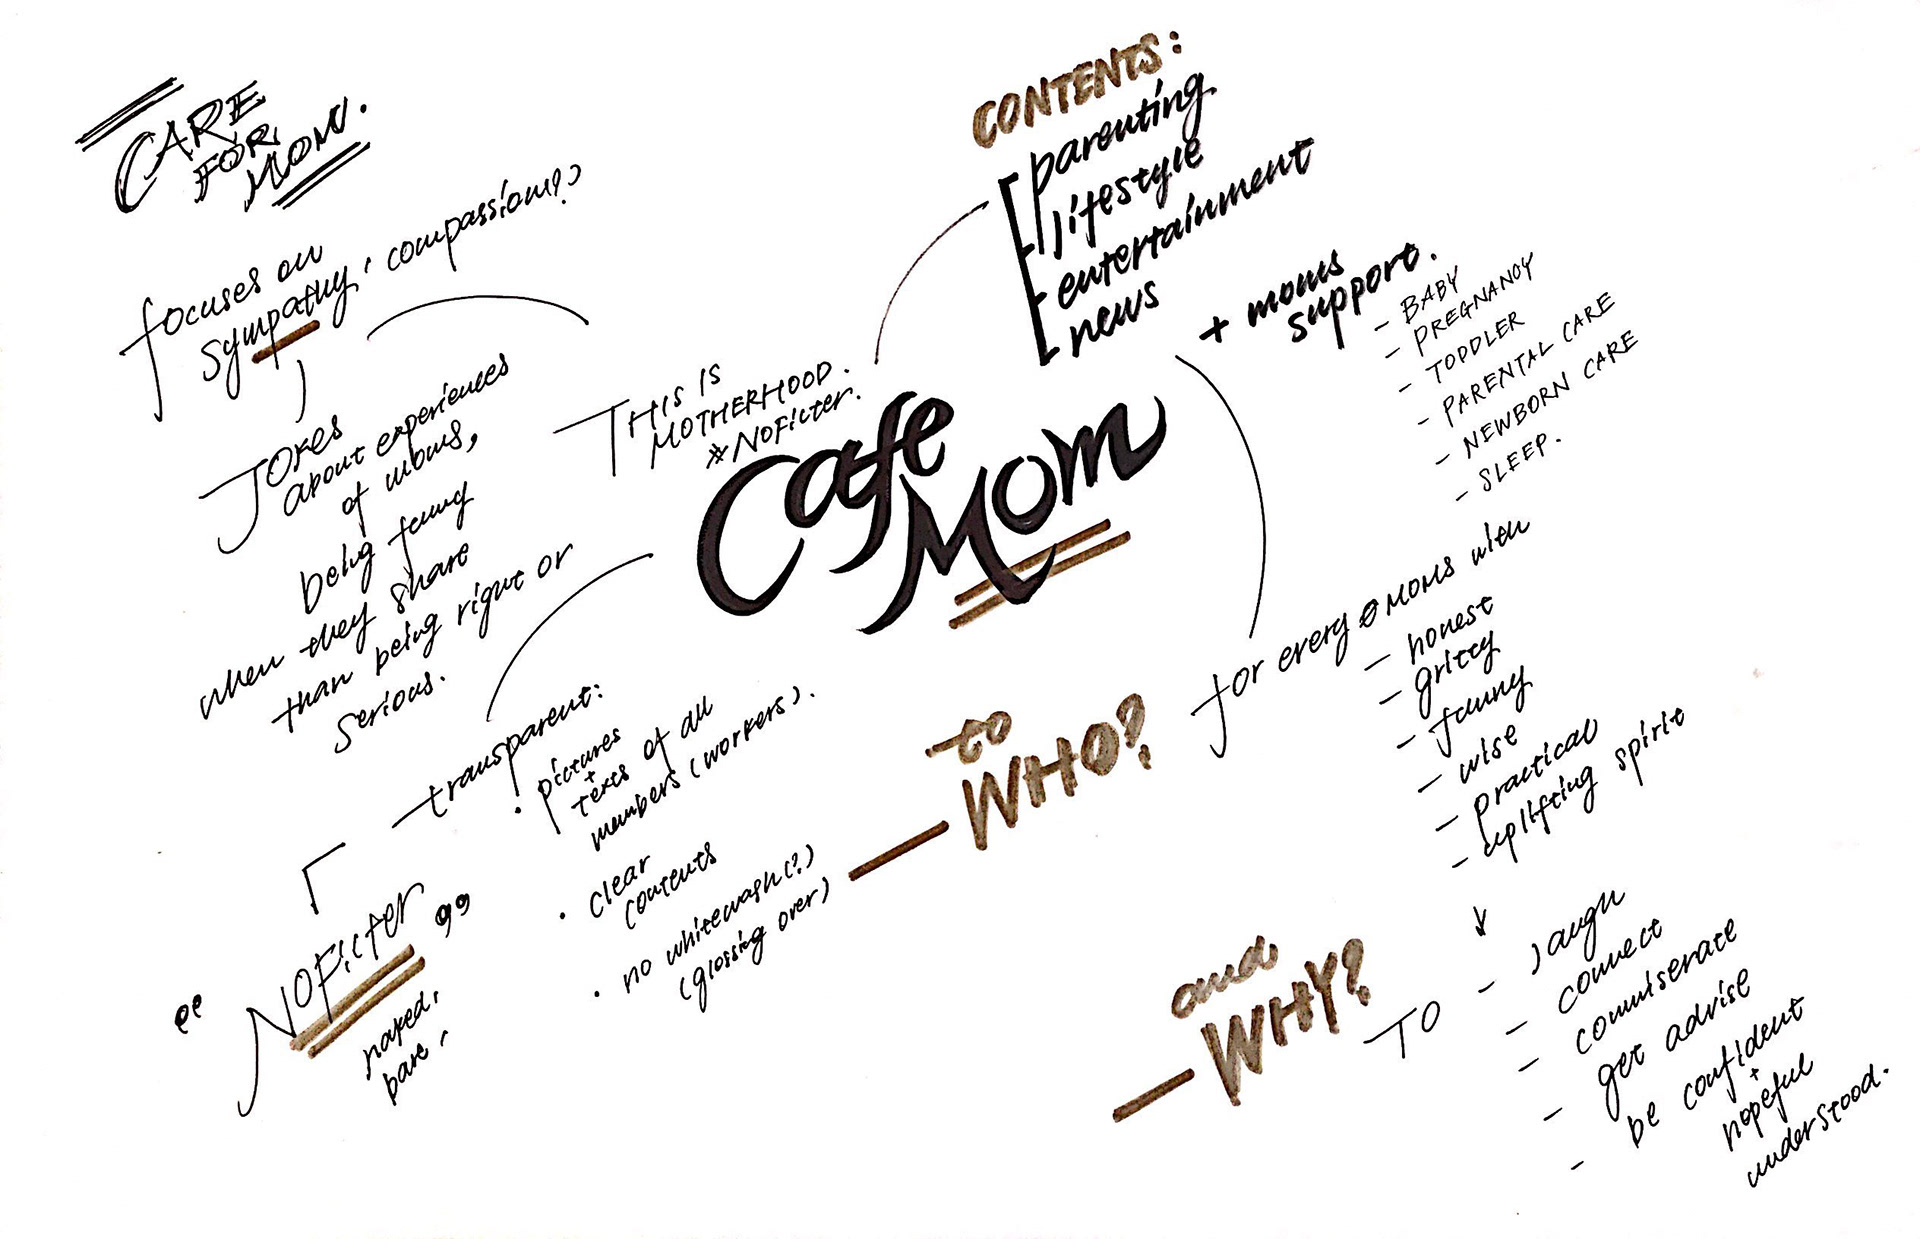 CARE
FOR
MOM.
focuses on
sympathy, compassion??
Jokes
about experiences
of moms,
being funny
when they share
than being right or
serious.
THIS IS
MOTHERHOOD.
#NOFilter.
Cafe
Mom
CONTENTS:
parenting
lifestyle
entertainment
news
+ moms
support.
- BABY
- PREGNANCY
- TODDLER
- PARENTAL CARE
- NEWBORN CARE
- SLEEP.
transparent:
• pictures
+
texts of all
members (workers).
• clear
contents
• no whitewash(?)
(glossing over)
“NOFilter”
naked,
bare,
— to
WHO?
for every MOMS with
- honest
- gritty
- funny
- wise
- practical
- uplifting spirit
and
— WHY?
TO - laugh
- connect
- commiserate
- get advise
- be confident
+
hopeful
understood.